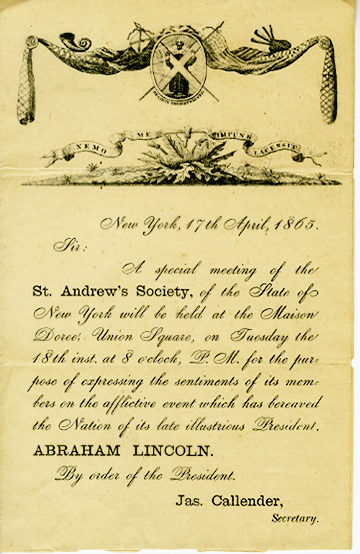 NEMO ME IMPUNE LACESSIT
New York, 17th April, 1865.
Sir:
A special meeting of the
St. Andrew's Society, of the State of
New York will be held at the Maison
Doree, Union Square, on Tuesday the
18th inst. at 8 o'clock, P. M. for the pur-
pose of expressing the sentiments of its mem-
bers on the afflictive event which has bereaved
the Nation of its late illustrious President,
ABRAHAM LINCOLN.
By order of the President.
Jas. Callender,
Secretary.